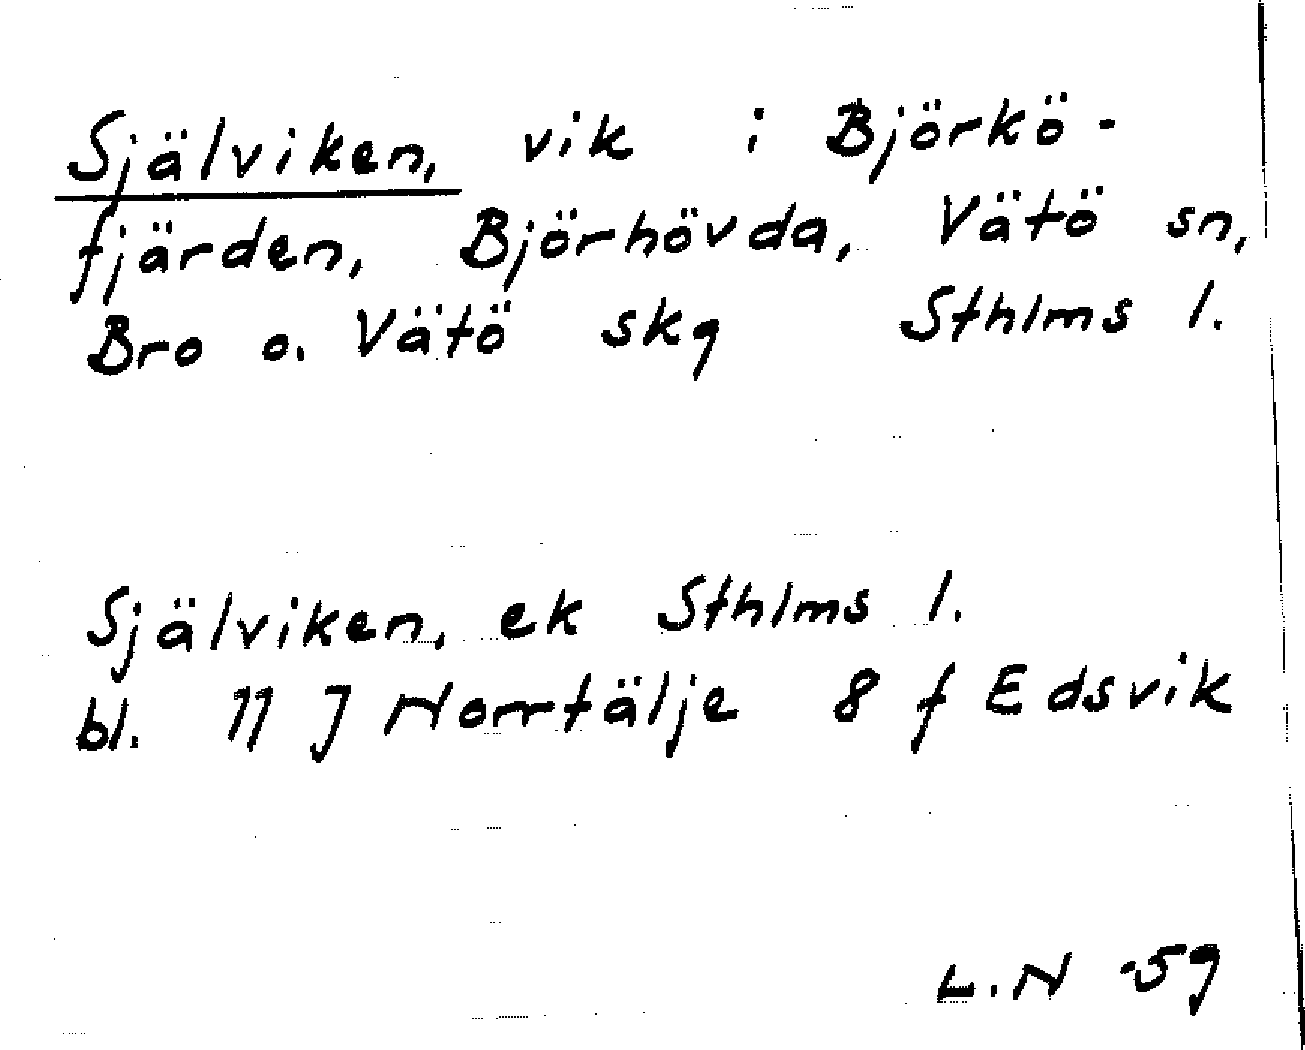 Självïken, vik i Björkö-
fjärden, Björhövda, Vätö sn,
Bro o. Vätö skg Sthlms l.
Själviken, ek Sthlms l.
bl. 11 J Norrtälje 8 f Edsvik
L.N -59